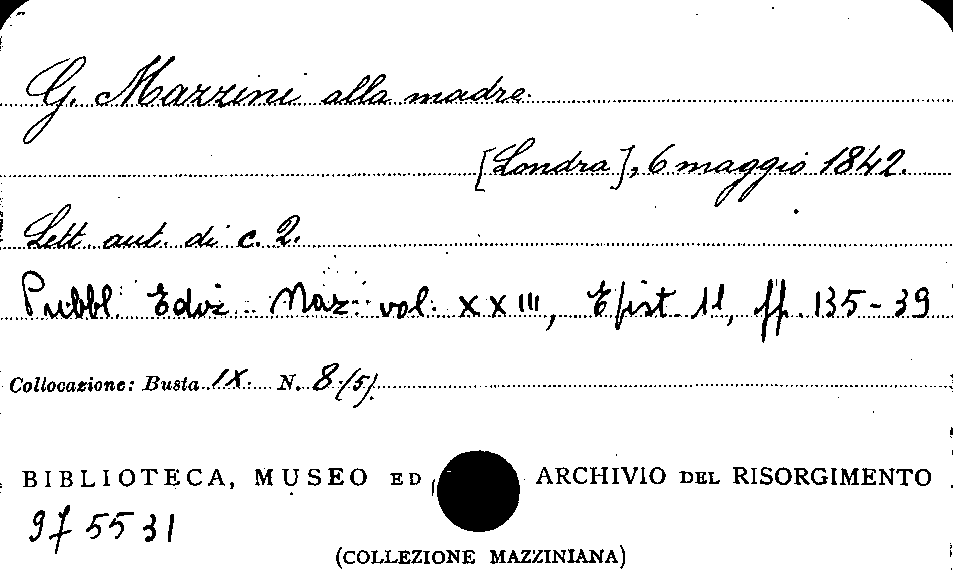 G. Mazzini alla madre.
[Londra], 6 maggio 1842.
Lett. aut. di c. 2.
Pubbl. Ediz. Naz. vol. XXIII, Epist. 11, pp. 135-39
Collocazione: Busta IX. N. 8 (5).
BIBLIOTECA, MUSEO ED ARCHIVIO DEL RISORGIMENTO
975531
(COLLEZIONE MAZZINIANA)